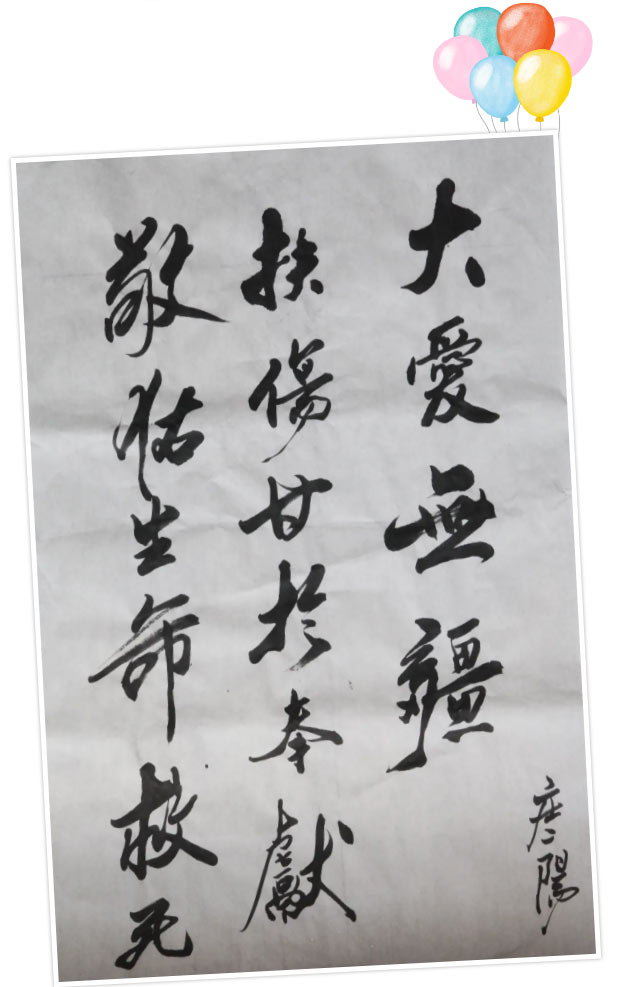 敬祐生命救死
扶傷甘於奉獻
大愛無疆
陽